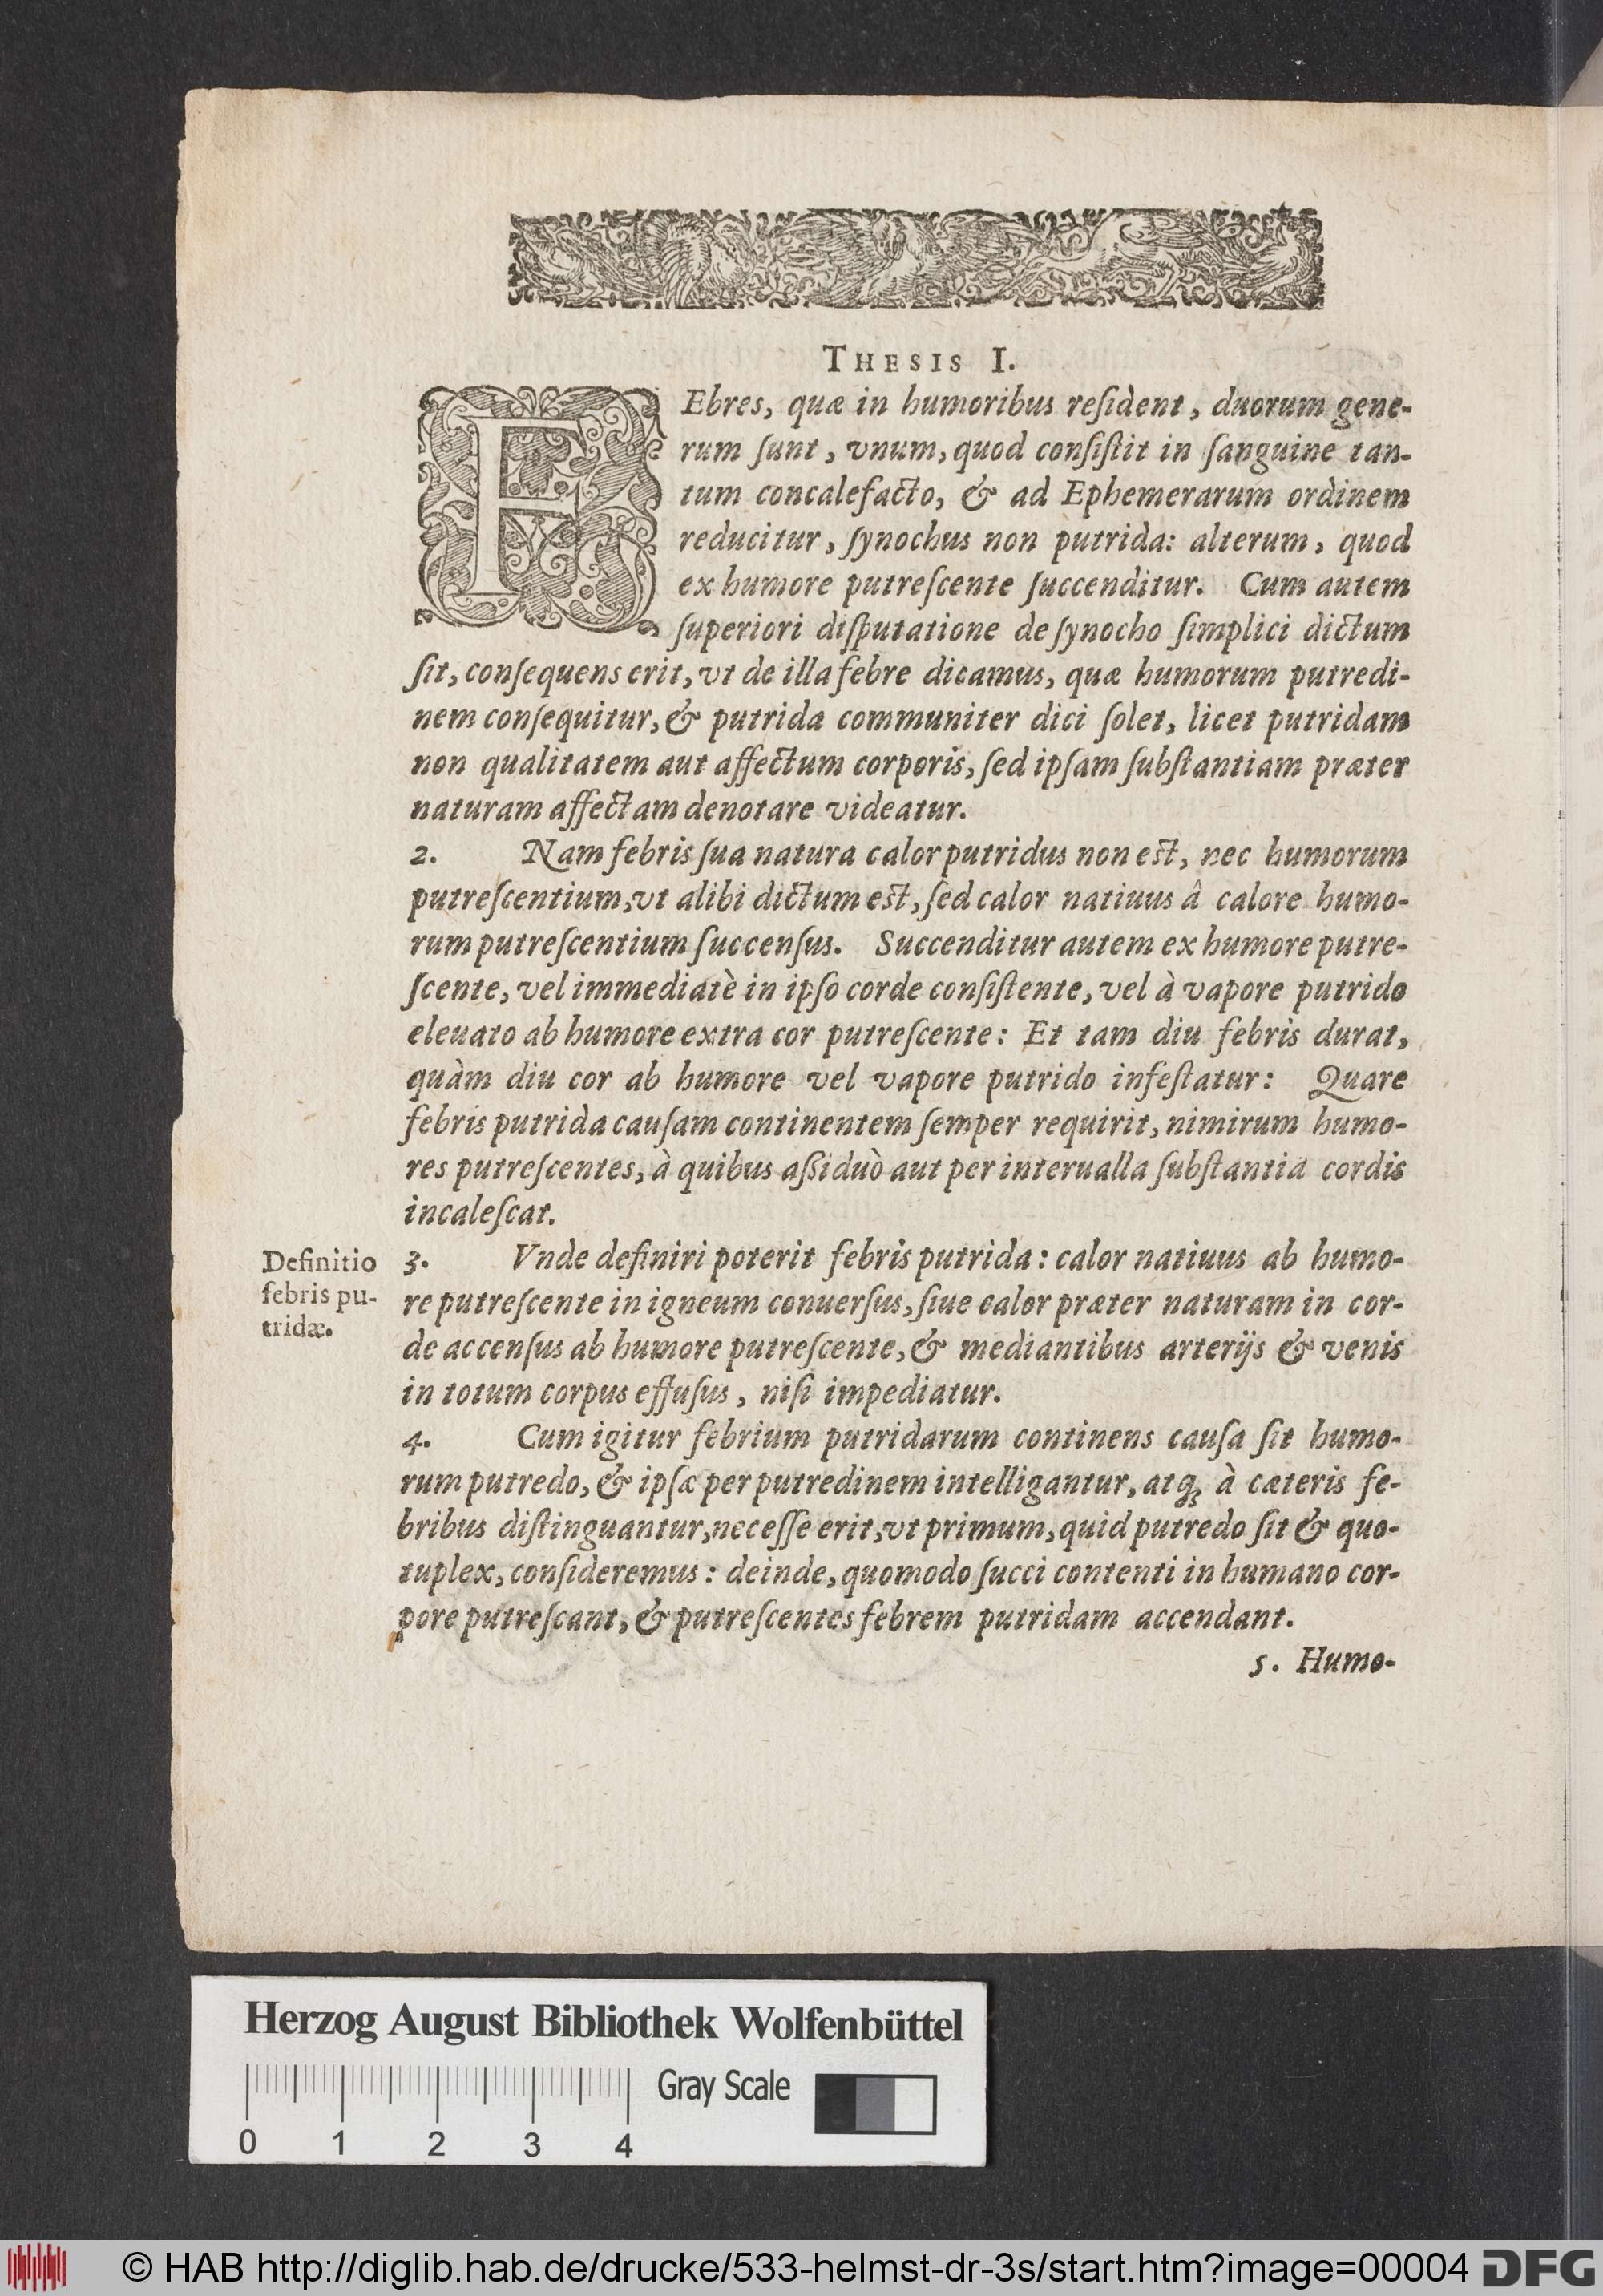 THESIS I.
FEbres, quæ in humoribus reſident, duorum gene-
rum ſunt, vnum, quod conſiſtit in ſanguine tan-
tum concalefacto, & ad Ephemerarum ordinem
reducitur, ſynochus non putrida: alterum, quod
ex humore putreſcente ſuccenditur. Cum autem
ſuperiori diſputatione de ſynocho ſimplici dictum
ſit, conſequens erit, vt de illa febre dicamus, quæ humorum putredi-
nem conſequitur, & putrida communiter dici ſolet, licet putridam
non qualitatem aut affectum corporis, ſed ipſam ſubſtantiam præter
naturam affectam denotare videatur.
2. Nam febris ſua natura calor putridus non eſt, nec humorum
putreſcentium, vt alibi dictum eſt, ſed calor natiuus â calore humo-
rum putreſcentium ſuccenſus. Succenditur autem ex humore putre-
ſcente, vel immediatè in ipſo corde conſiſtente, vel à vapore putrido
eleuato ab humore extra cor putreſcente: Et tam diu febris durat,
quàm diu cor ab humore vel vapore putrido infeſtatur: Quare
febris putrida cauſam continentem ſemper requirit, nimirum humo-
res putreſcentes, à quibus aßiduò aut per interualla ſubſtantia cordis
incaleſcat.
Definitio
febris pu-
tridæ.
3. Vnde definiri poterit febris putrida: calor natiuus ab humo-
re putreſcente in igneum conuerſus, ſiue calor præter naturam in cor-
de accenſus ab humore putreſcente, & mediantibus arterijs & venis
in totum corpus effuſus, niſi impediatur.
4. Cum igitur febrium putridarum continens cauſa ſit humo-
rum putredo, & ipſæ per putredinem intelligantur, atq; à cæteris fe-
bribus diſtinguantur, neceſſe erit, vt primum, quid putredo ſit & quo-
tuplex, conſideremus: deinde, quomodo ſucci contenti in humano cor-
pore putreſcant, & putreſcentes febrem putridam accendant.
5. Humo-
Herzog August Bibliothek Wolfenbüttel
Gray Scale
0 1 2 3 4
© HAB http://diglib.hab.de/drucke/533-helmst-dr-3s/start.htm?image=00004 DFG